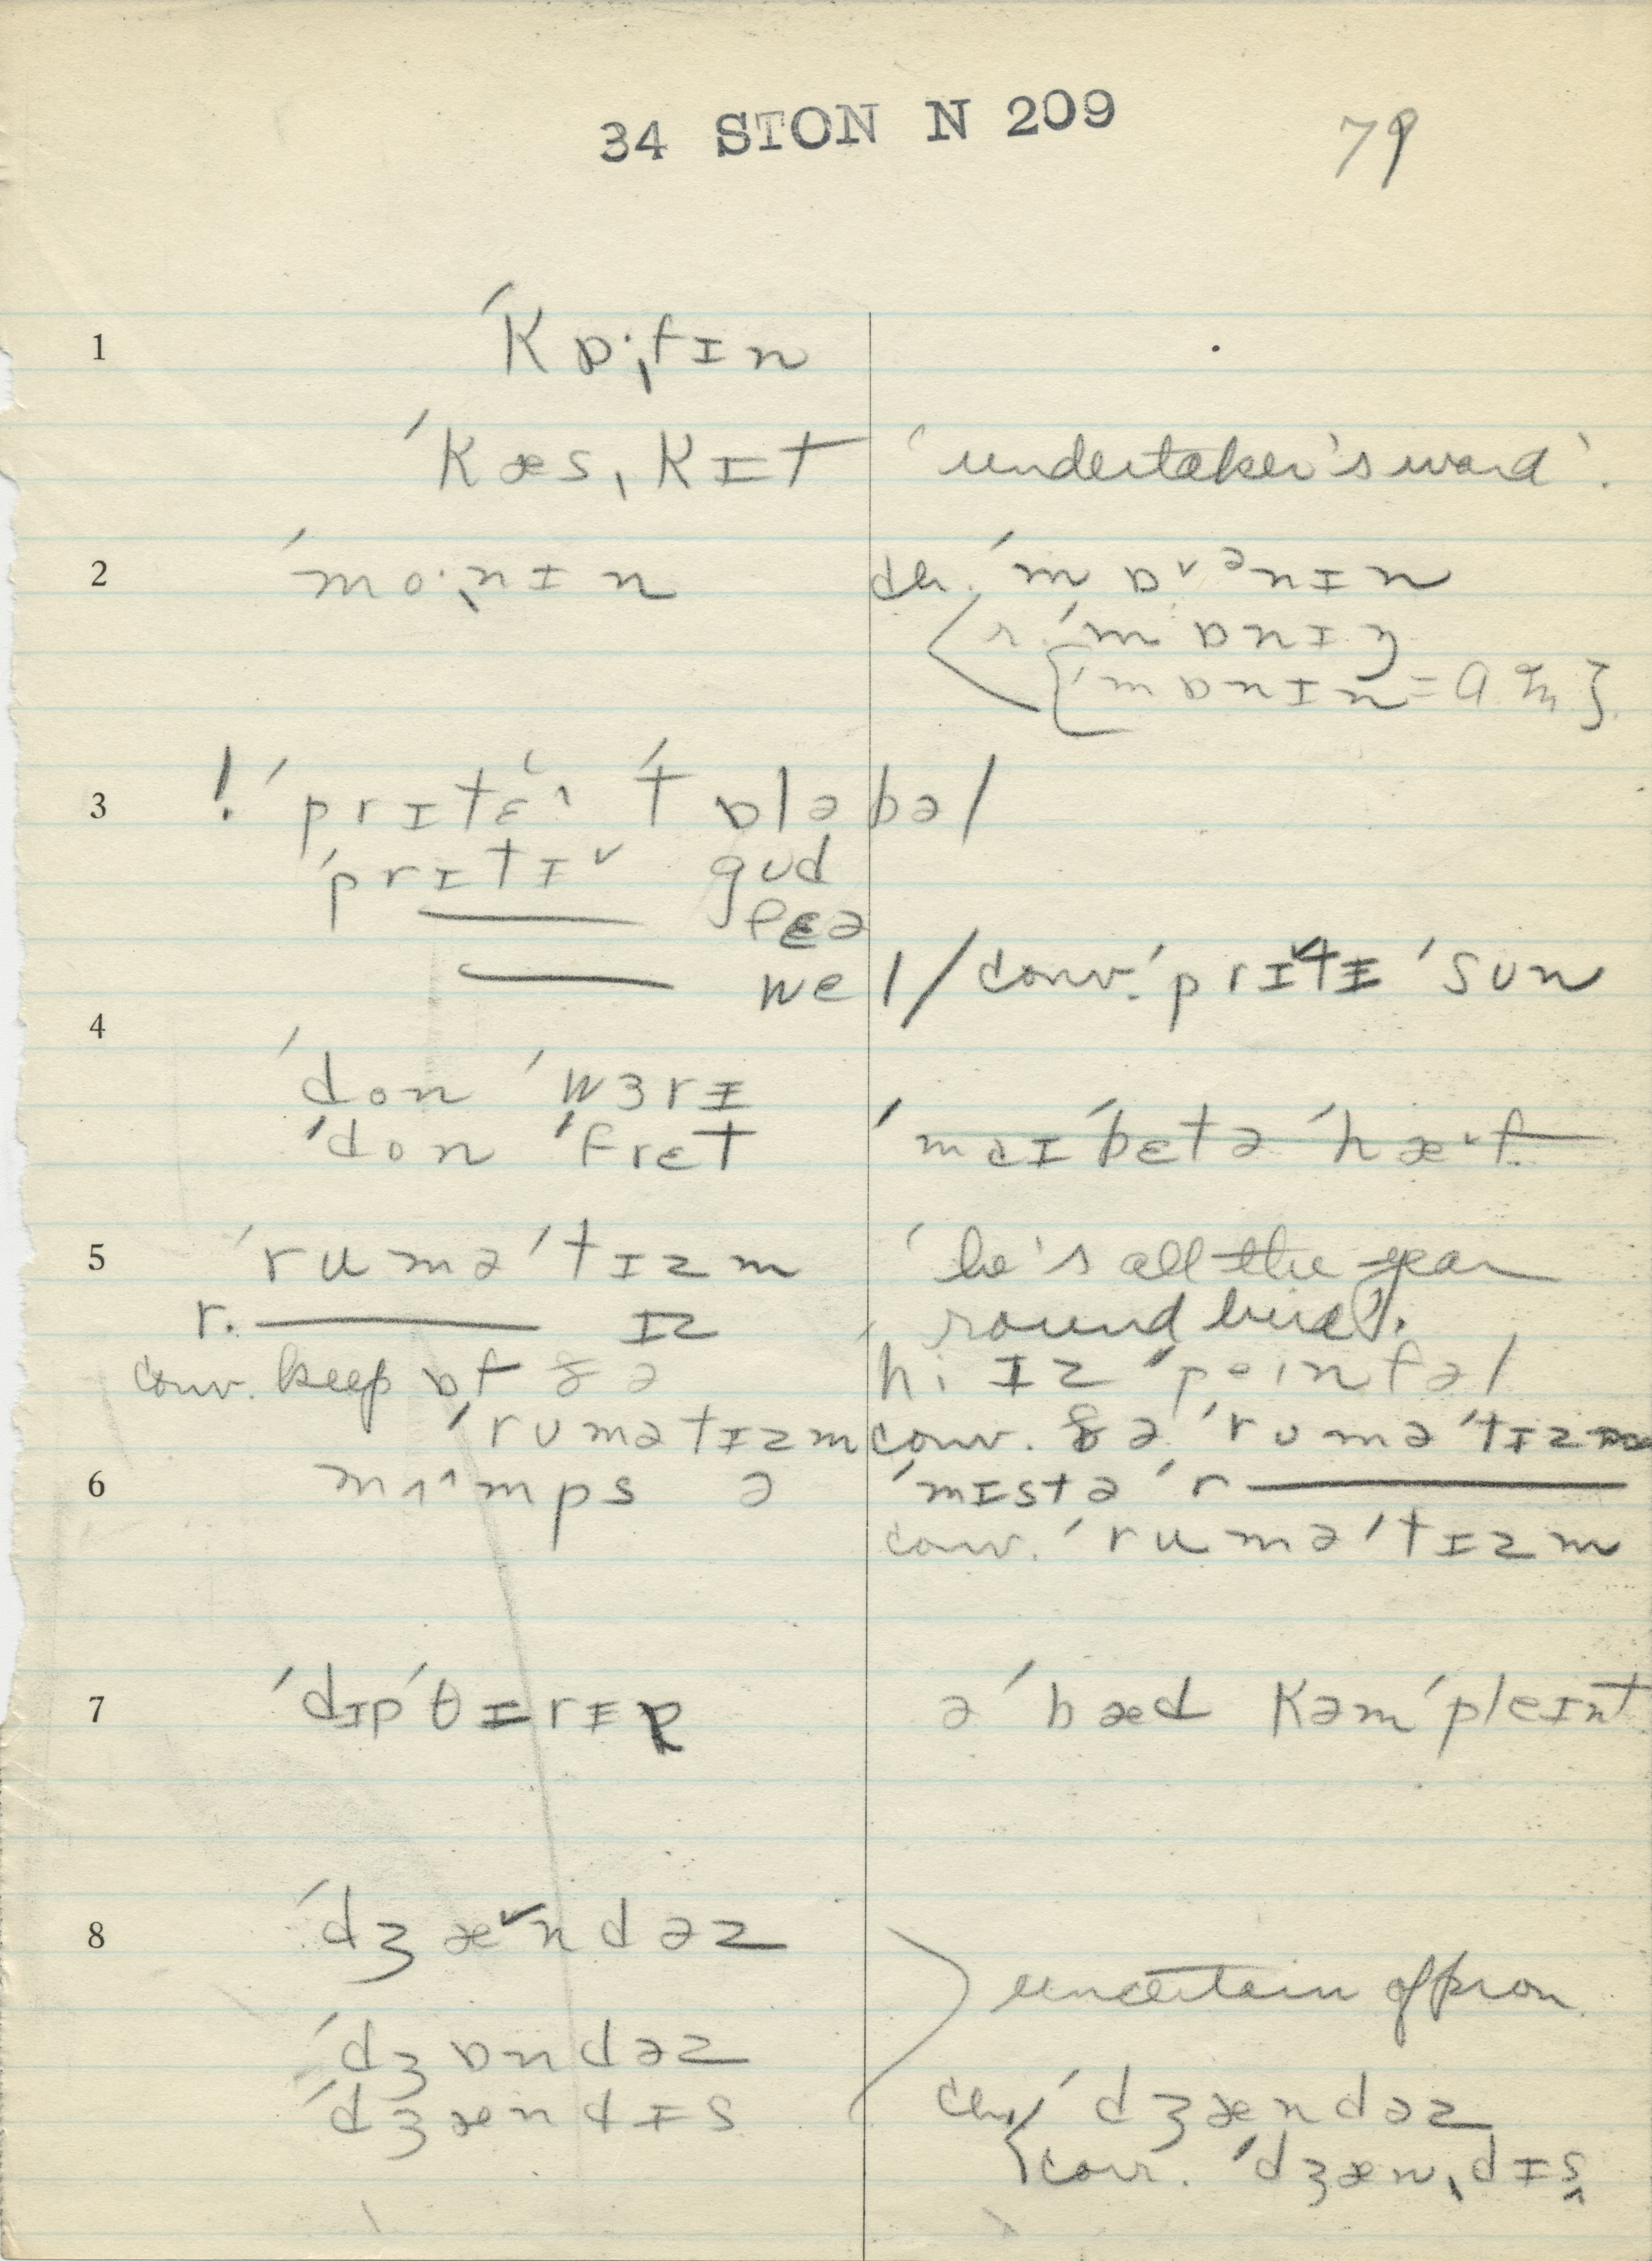 34 STON N 209 79
1 ˈkɒ·ˌfɪn
ˈkæsˌkɪt 'undertaker's word'.
2 ˈmo·ˌnɪn ch. ˈmɒ˅ᵊnɪn
r. ˈmɒnɪŋ
{ˈmɒnɪn =
3 ! ˈprɪtɛ˄ ˈtɒləbəl
ˈprɪtɪ˅ gʊd
—— fɛə
—— wel / conv. ˈprɪtɪ ˈsun
4 ˈdon ˈwɜrɪ
ˈdon ˈfrɛt ˈmaɪ ˈbɛtə ˈhæ˅f
5 ˈruməˈtɪzm 'he's all the year
r. —— ɪz round bird'.
conv. keep ɒf ðə hi ɪz ˈpeinfəl
ˈrumətɪzm conv. ðə ˈruməˈtɪzm
6 mʌ˄mps ə ˈmɪstə ˈr——
conv. ˈruməˈtɪzm
7 ˈdɪpˈθɪrɪɐ ə ˈbæd kəmˈpleɪnt
8 ˈdʒæ˅ndəz
uncertain of pron.
ˈdʒɒndəz
ˈdʒændɪs ch. ˈdʒændəz
corr. ˈdʒænˌdɪs